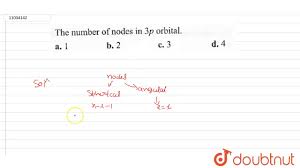 11034142
The number of nodes in 3p orbital.
a. 1 b. 2 c. 3 d. 4
Solⁿ
nodes
Spherical angular
n-l-1 l=1
doubtnut